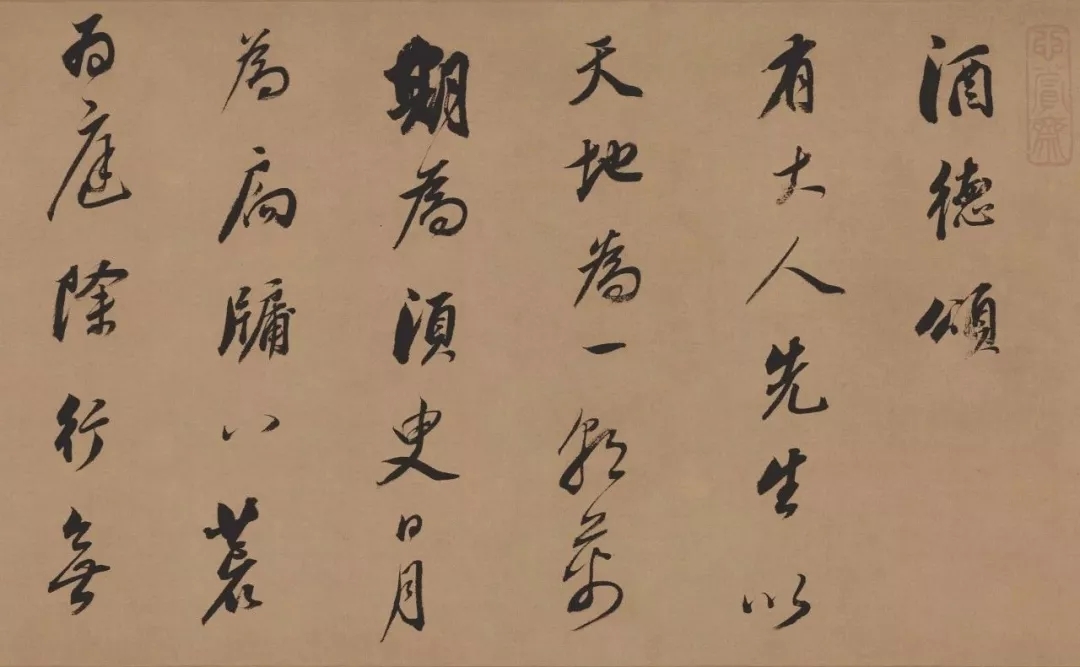 酒德頌
有大人先生以
天地為一朝萬
期為湏臾日月
為扃牖八荒
為庭除行無